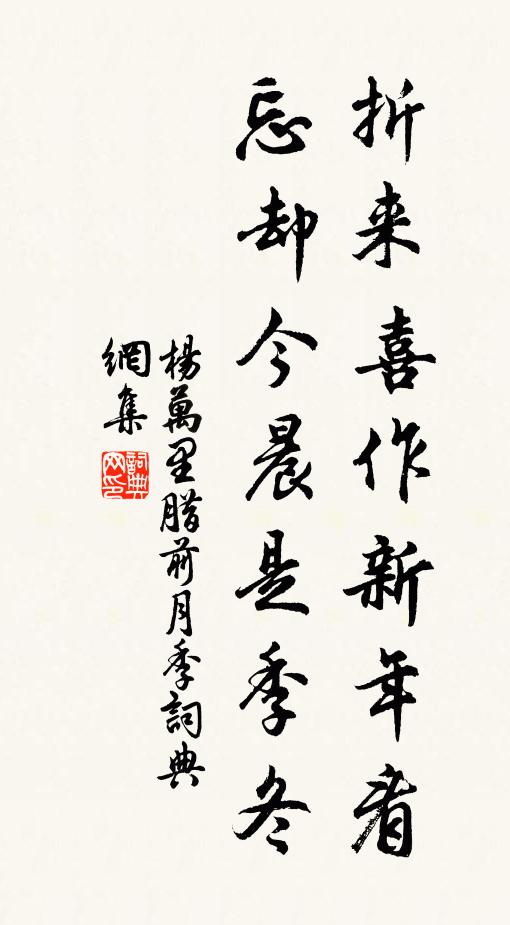 折来喜作新年看
忘却今晨是季冬
楊萬里腊前月季詞典
網集
詞典网印